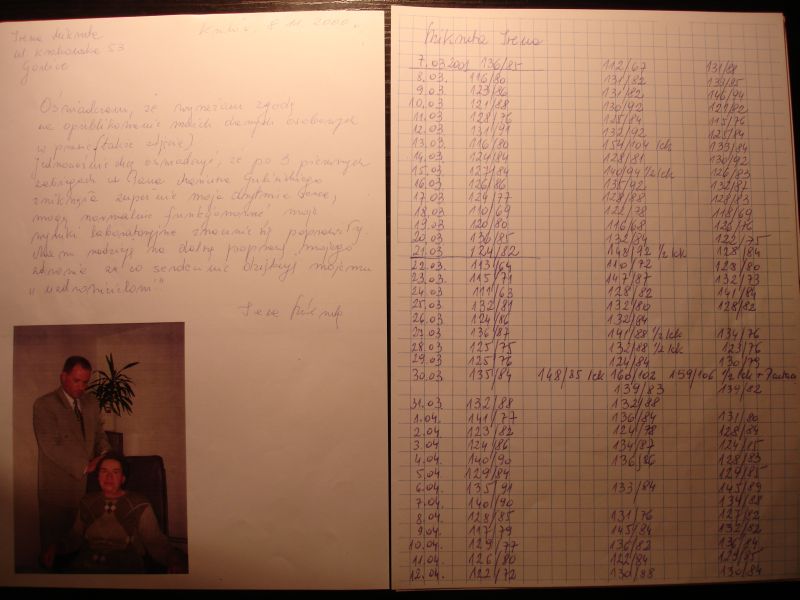 Irena Miknita
ul. Krakowska 53
Gorlice
Kraków, 8.11.2000.
Oświadczam, że wyrażam zgodę
na opublikowanie moich danych osobowych
w prasie (także zdjęcie)
Jednocześnie chcę oświadczyć, że po 3 pierwszych
zabiegach u Pana
zniknęła zupełnie moja arytmia serca,
mogę normalnie funkcjonować, moje
wyniki laboratoryjne znacznie się poprawiły.
Mam nadzieję na dalszą poprawę mojego
zdrowia za co serdecznie dziękuję mojemu
Irena Miknita
Miknita Irena
7.03 2001 136/85 112/67 131/88
8.03. 116/80 131/82 133/85
9.03. 123/86 131/82 146/94
10.03. 121/88 130/92 127/92
11.03. 128/76 125/84 115/76
12.03. 131/91 132/92 125/84
13.03. 116/80 154/104 1ck 133/84
14.03. 124/84 128/81 130/92
15.03. 127/84 140/94 1/2 ck 126/83
16.03 126/86 135/92 132/87
17.03 124/77 128/88 128/83
18.03 110/69 122/78 118/69
19.03 120/80 116/68 126/76
20.03 136/85 132/84 122/75
21.03 124/82 148/92 1/2 ck 128/84
22.03 113/64 110/72 128/80
23.03 115/71 147/87 132/73
24.03 111/63 128/82 141/84
25.03. 132/81 132/80 128/82
26.03. 124/86 132/84
27.03 136/87 141/88 1/2 ck 134/76
28.03 125/75 132/88 1/2 ck 123/76
29.03 125/76 124/84 130/79
30.03 135/84 148/85 1ck 160/102 159/106 1/2 ck +
139/83 139/82
31.03 132/88 132/88
1.04. 141/77 136/84 131/80
2.04. 123/82 124/78 128/84
3.04 124/86 134/87 124/75
4.04. 140/90 136/86 128/83
5.04. 129/84 129/85
6.04. 135/91 133/84 145/89
7.04. 140/90 134/88
8.04. 128/85 131/76 127/82
9.04 117/79 145/84 132/82
10.04. 129/77 136/82 136/84
11.04. 126/80 122/84 129/85
12.04. 122/72 130/88 130/84